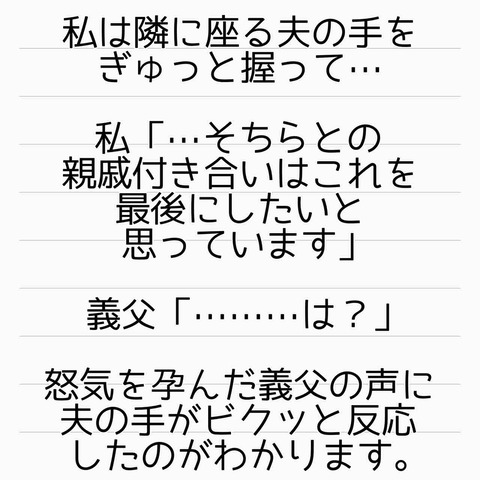 私は隣に座る夫の手を
ぎゅっと握って…
私「…そちらとの
親戚付き合いはこれを
最後にしたいと
思っています」
義父「………は？」
怒気を孕んだ義父の声に
夫の手がビクッと反応
したのがわかります。